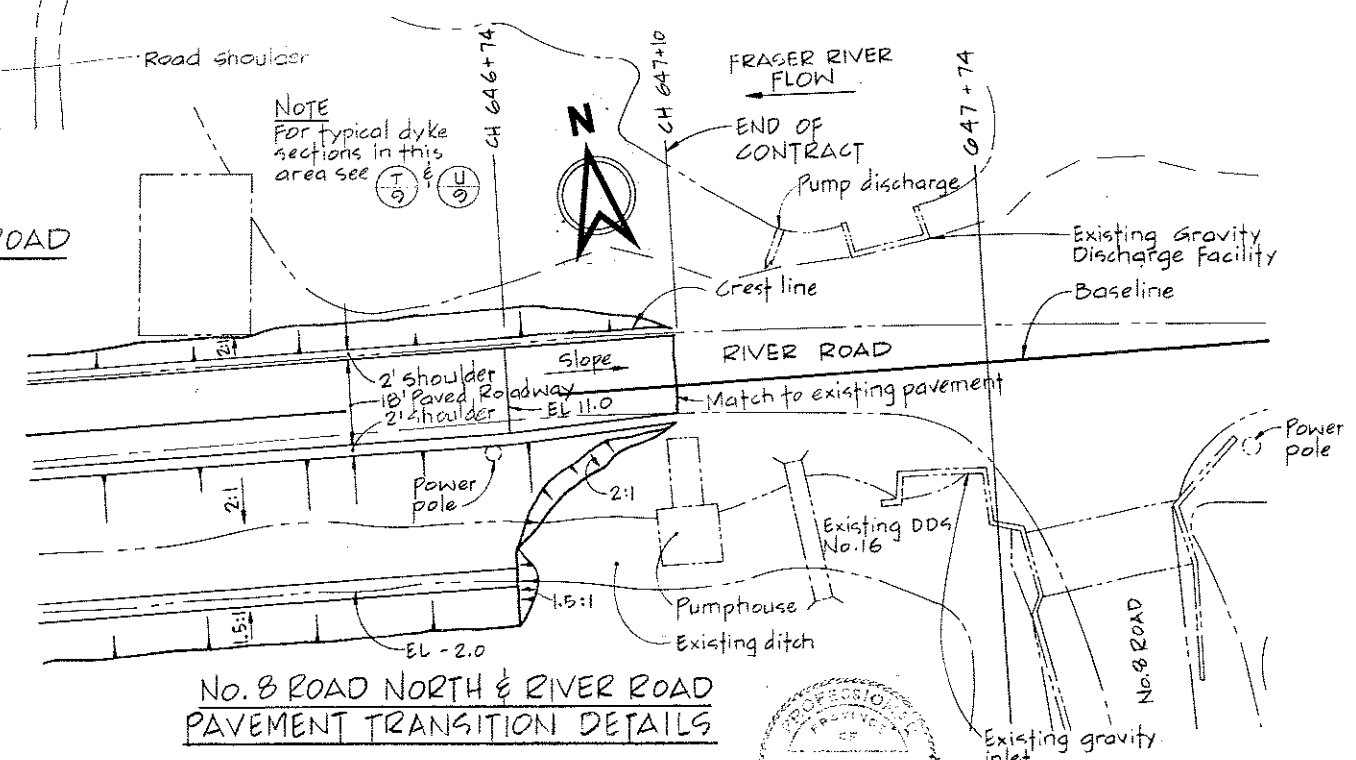 Road Shoulder
NOTE
For typical dyke
sections in this
area see T/9 & U/9
CH 646+74
CH 647+10
FRASER RIVER
FLOW
647+74
N
END OF
CONTRACT
Pump discharge
ROAD
Existing Gravity
Discharge Facility
Crest line
Baseline
2:1
RIVER ROAD
Slope
2' Shoulder
18' Paved Roadway
2' Shoulder
EL 11.0
Match to existing pavement
Power
pole
Power
pole
2:1
2:1
Existing DDS
No.16
1.5:1
1.5:1
Pumphouse
Existing ditch
EL -2.0
No.8 ROAD
No. 8 ROAD NORTH & RIVER ROAD
PAVEMENT TRANSITION DETAILS
PROFESSIONAL
PROVINCE
OF
Existing gravity
inlet